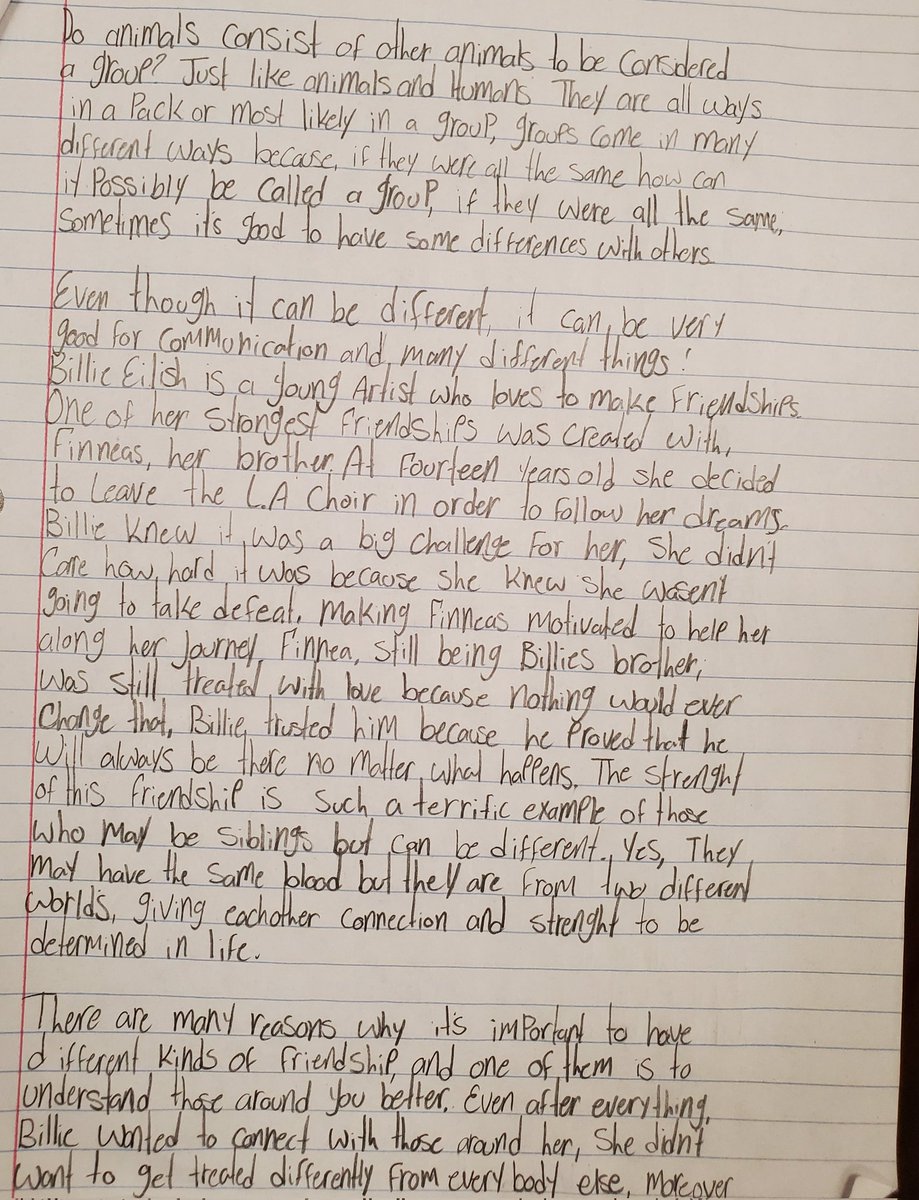 Do animals consist of other animals to be considered
a group? Just like animals and Humans They are all ways
in a Pack or most likely in a group, groups come in many
different ways because, if they were all the same how can
it Possibly be called a group, if they were all the same,
Sometimes it's good to have some differences with others.
Even though it can be different, it can, be very
good for communication and many different things!
Billie Eilish is a young Artist who loves to make Friendships.
One of her strongest friendships was created with,
Finneas, her brother. At Fourteen years old she decided
to Leave the L.A Choir in order to follow her dreams.
Billie knew it was a big challenge For her, She didn't
Care how hard it was because she knew she wasent
going to take defeat. Making Finneas motivated to help her
along her Journey, Finnea, still being Billies brother,
was still treated with love because nothing would ever
Change that, Billie trusted him because he Proved that he
Will always be there no matter what happens. The strenght
of this friendship is such a terrific example of those
Who May be siblings but can be different. Yes, They
May have the same blood but they are From two different
Worlds, giving eachother connection and strenght to be
determined in life.
There are many reasons why it's imPortant to have
different kinds of friendship, and one of them is to
understand those around you better. Even after everything,
Billie Wanted to connect with those around her, She didn't
Want to get treated differently From every body else, Moreover